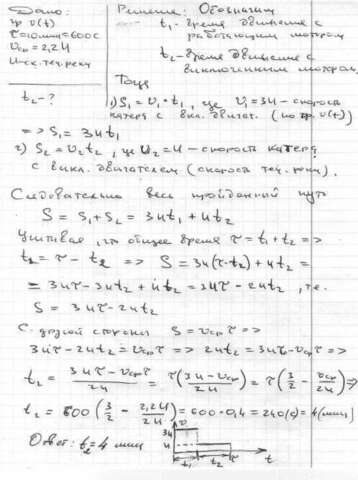 Дано:
гр. v(t)
τ=10 мин=600 с
vср = 2,2 u
u-ск. теч. реки
t₂ - ?
Решение: Обозначим
t₁ - время движения с
работающим мотором
t₂ - время движения с
выключенным мотором.
Тогда
1) S₁ = v₁·t₁, где v₁=3u - скорость
катера с вкл. двигат. (по гр. v(t))
=> S₁ = 3ut₁
2) S₂ = v₂t₂, где v₂=u - скорость катера
с выкл. двигателем (скорость теч. реки).
Следовательно весь пройденный путь
S = S₁+S₂ = 3ut₁+ut₂
Учитывая, что общее время τ = t₁+t₂ =>
t₂ = τ - t₂ => S = 3u(τ-t₂)+ut₂ =
= 3uτ-3ut₂+ut₂ = 3uτ-2ut₂, т.е.
S = 3uτ-2ut₂
С другой стороны S = vср τ =>
3uτ-2ut₂=vср τ => 2ut₂=3uτ-vср τ =>
t₂ = (3uτ-vср τ)/2u = τ(3u-vср)/2u = τ(3/2 - vср/2u) =>
t₂ = 600 (3/2 - 2,2u/2u) = 600·0,4 = 240(с) = 4(мин)
Ответ: t₂=4 мин
v
3u
u
t₁
t₂
τ
t